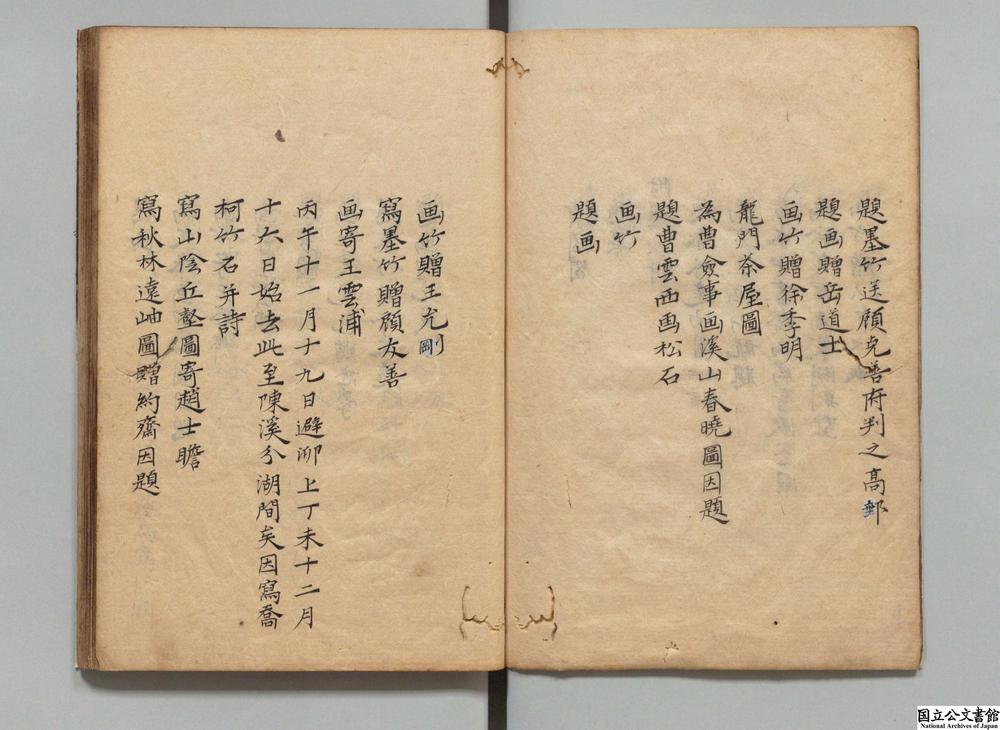 題墨竹送顧克善府判之髙郵
題画贈岳道士
画竹贈徐季明
龍門茶屋圖
為曹僉事画溪山春曉圖因題
題曹雲西画松石
画竹
題画
画竹贈王允剛
寫墨竹贈顧友善
画寄王雲浦
丙午十一月十九日避泖上丁未十二月
十六日始去此至陳溪分湖間矣因寫喬
柯竹石并詩
寫山陰丘壑圖寄趙士瞻
寫秋林遠岫圖贈約齋因題
国立公文書館
National Archives of Japan